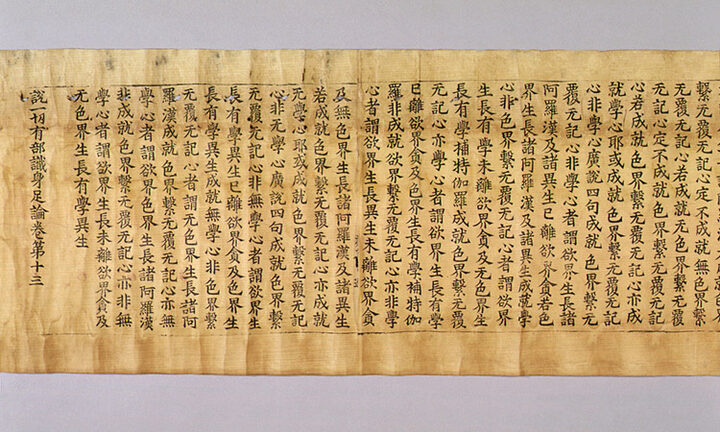 繫无覆无記心定不成就無色界繫
无覆无記心若成就无色界繫无覆
无記心定不成就色界繫无覆无記
心若成就色界繫无覆无記心亦成
就學心耶或成就色界繫无覆无記
心非學心廣說四句成就色界繫无
覆无記心非學心者謂欲界生長諸
阿羅漢及諸異生已離欲界貪若色
界生長諸阿羅漢及諸異生成就學
心非色界繫无覆无記心者謂欲界
生長有學未離欲界貪及无色界生
長有學補特伽羅成就色界繫无覆
无記心亦學心者謂欲界生長有學
已離欲界貪及色界生長有學補特伽
羅非成就欲界繫无覆无記心亦非學
心者謂欲界生長異生未離欲界貪
及無色界生長諸阿羅漢及諸異生
若成就色界繫无覆无記心亦成就
无學心耶或成就色界繫无覆无記
心非无學心廣說四句成就色界繫
无覆无記心非無學心者謂欲界生
長有學異生已離欲界貪及色界生
長有學異生成就無學心非色界繫
无覆无記心者謂无色界生長諸阿
羅漢成就色界繫无覆无記心亦無
學心者謂欲界色界生長諸阿羅漢
非成就色界繫无覆无記心亦非無
學心者謂欲界生長未離欲界貪及
无色界生長有學異生
說一切有部識身足論卷第十三